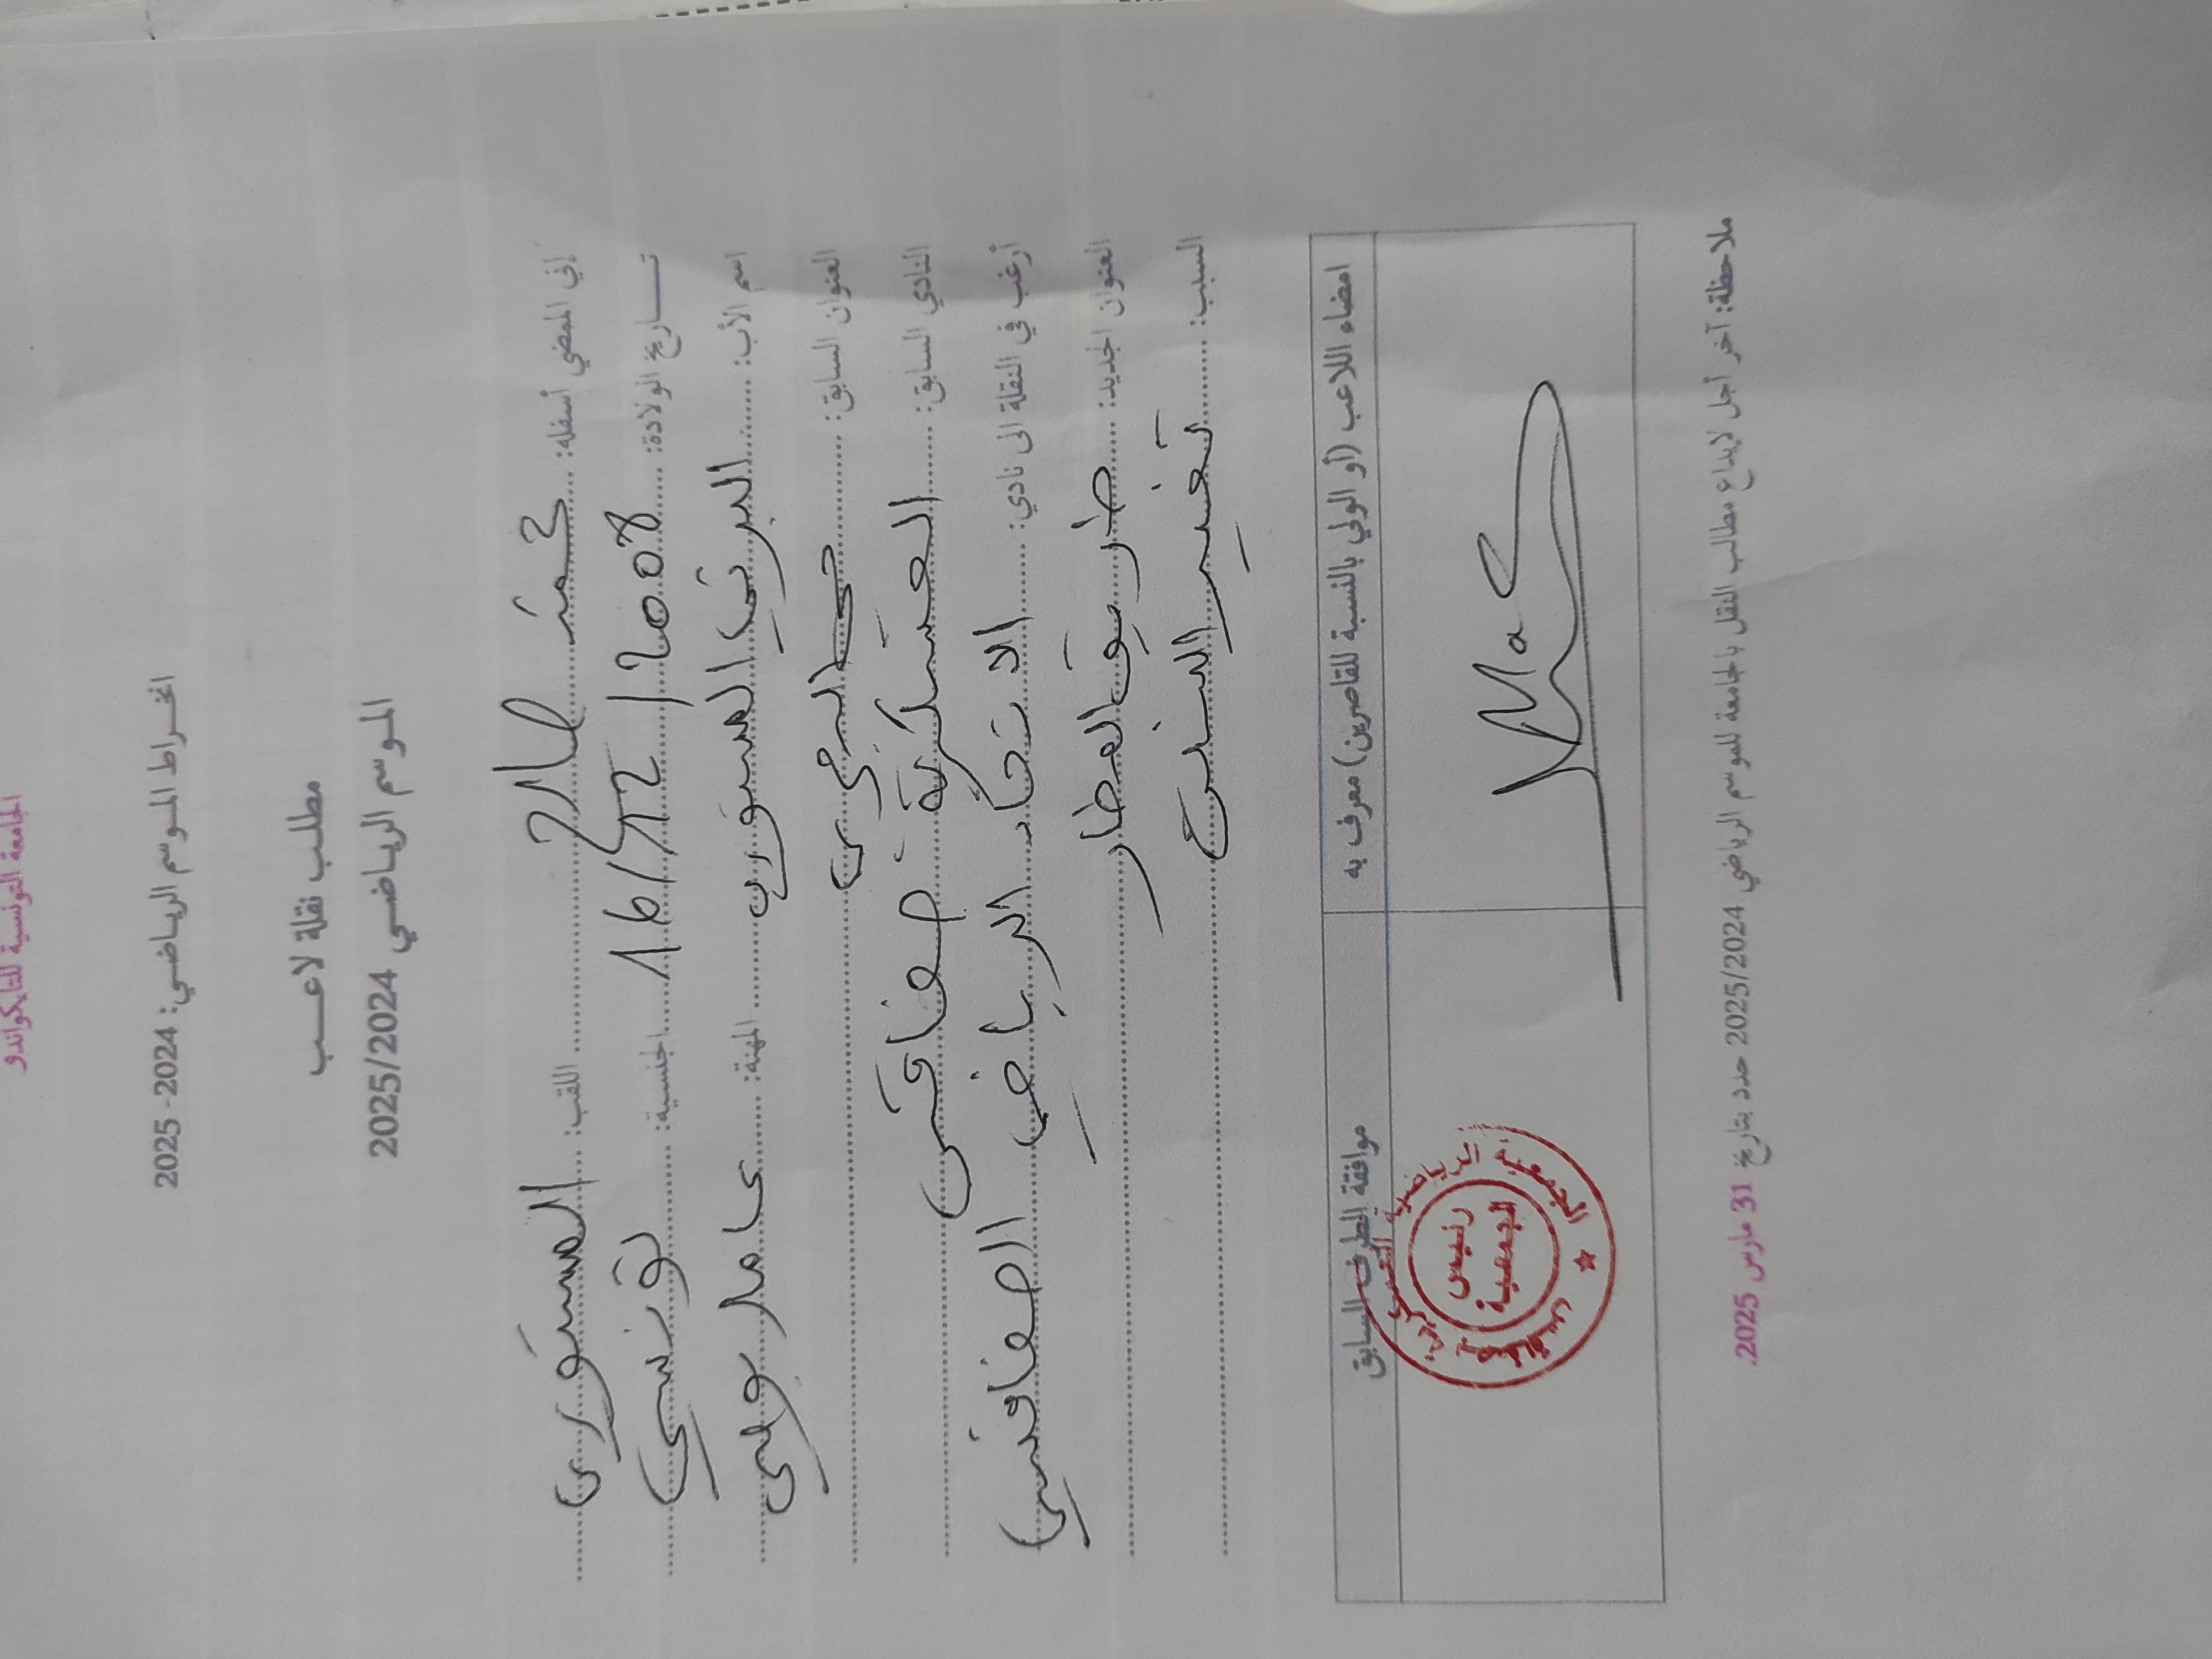 الجامعة التونسية للتايكواندو
انخراط الموسم الرياضي: 2024- 2025
مطلب نقلة لاعب
الموسم الرياضي 2025/2024
إني الممضي أسفله: اللقب: المستوري
تاريخ الولادة: 16/12/2008 الجنسية: تونسي
اسم الأب: المهنة:
العنوان السابق:
النادي السابق: العسكرية صفاقس
أرغب في النقلة الى نادي: الاتحاد الرياضي الصفاقسي
العنوان الجديد: طريق العطار
السبب: تغيير السكن
امضاء اللاعب (أو الولي بالنسبة للقاصرين) معرف به
موافقة الطرف السابق
الجمعية الرياضية العسكرية بصفاقس
رئيس
الجمعية
ملاحظة: آخر أجل لإيداع مطالب النقل بالجامعة للموسم الرياضي 2025/2024 حدد بتاريخ 31 مارس 2025.